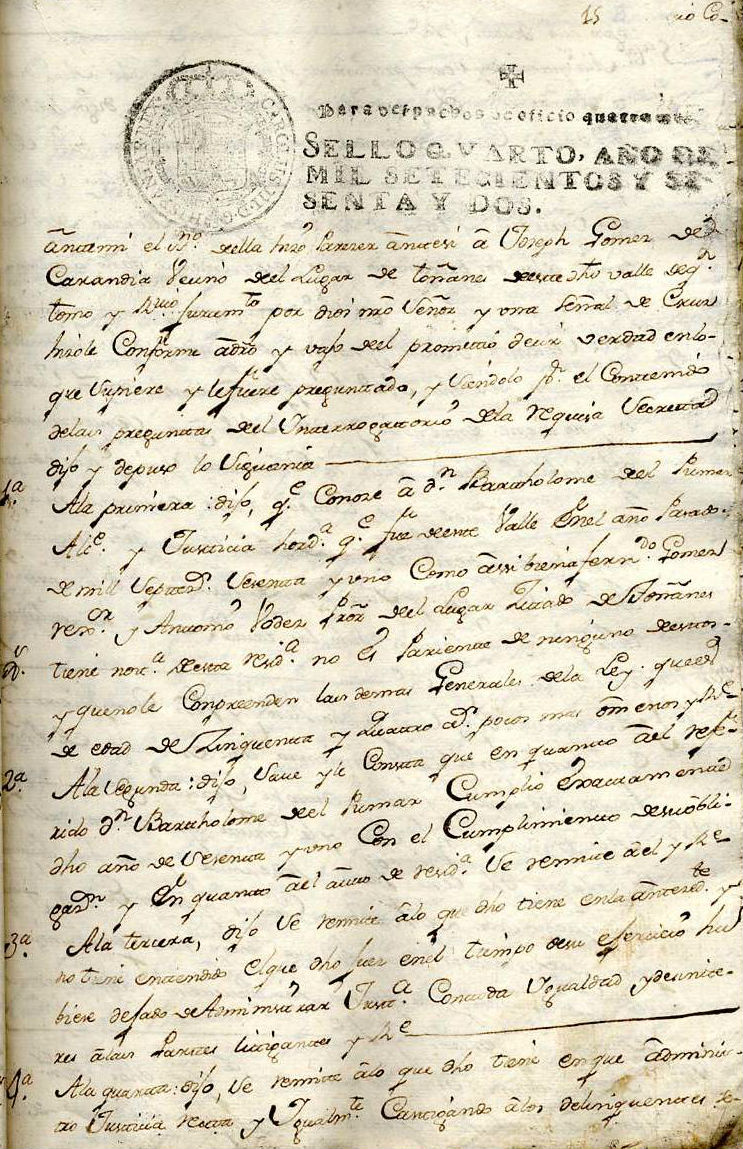 15
Para despachos de oficio quatro mrs.
SELLO QVARTO, AÑO DE
MIL SETECIENTOS Y SE-
SENTA Y DOS.
antemi el Sº. della hizo Parezer antesi â Joseph Gomez de
Carandia Vecino del Lugar de toñanes deeste dho valle deqn.
tomo y Rvio juramto por dios nro Señor y una señal de Cruz
hizole Conforme adro y vajo del prometio decir verdad enlo-
que supiere y lefuere preguntado, y siendolo pr. el Contenido
delas preguntas del Interrogatorio dela pesquisa Secreta
dijo y depuso lo siguiente
1ª
Ala primera: dijo, qe. Conoze â dn. Bartholome del Pumar
Alce. y Justicia hordª qe fue deeste Valle enel año Pasado
de mill Septezs. sesenta y uno Como assibien a ferndo Gomez
rexor y Antonio Prōr del Lugar Zitado de toñanes
tiene notª deesta residª no es Pariente de ninguno deestos
y quenole Conpreenden las demas Generales dela Ley. quees
de edad de Zinquenta y quatro as. pocos mas omenos y Re
2ª
Ala segunda: dijo, save y le Consta que en quanto âel refe-
rido dn. Bartholome del Pumar Cumplio exactamente
dho año de sesenta y uno Con el Cumplimiento desuobli-
gazn. y en quanto âel auto de residª. se remite ael y Re
3ª
Ala tercera, dijo se remite alo que dho tiene enla antezedte. y
no tiene entendido elque dho Juez enel tiempo desu esercicio hu
biese dejado de Administrar Justª. Contoda Ygualdad ydesinte-
res âlas Partes litigantes y Re
4ª.
Ala quarta: dijo, se remite alo que dho tiene enque adminis-
tro Justicia recta y Igualmte. Castigando âlos delinquentes se-